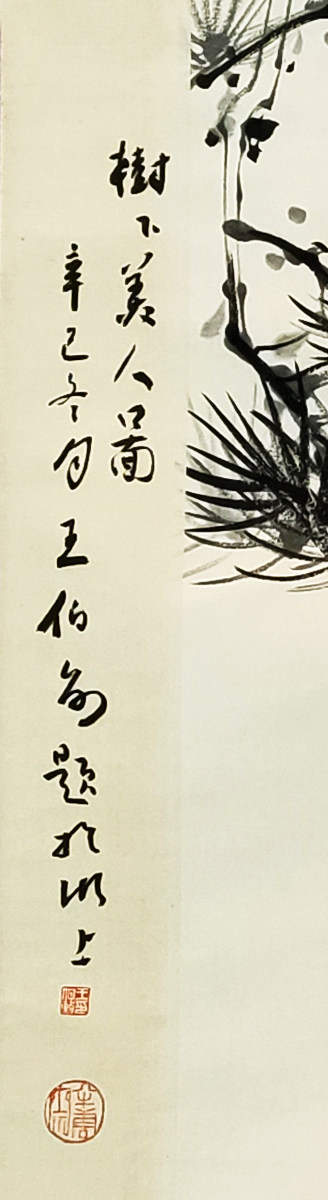 樹下美人圖
辛巳冬月王伯敏題於湖上